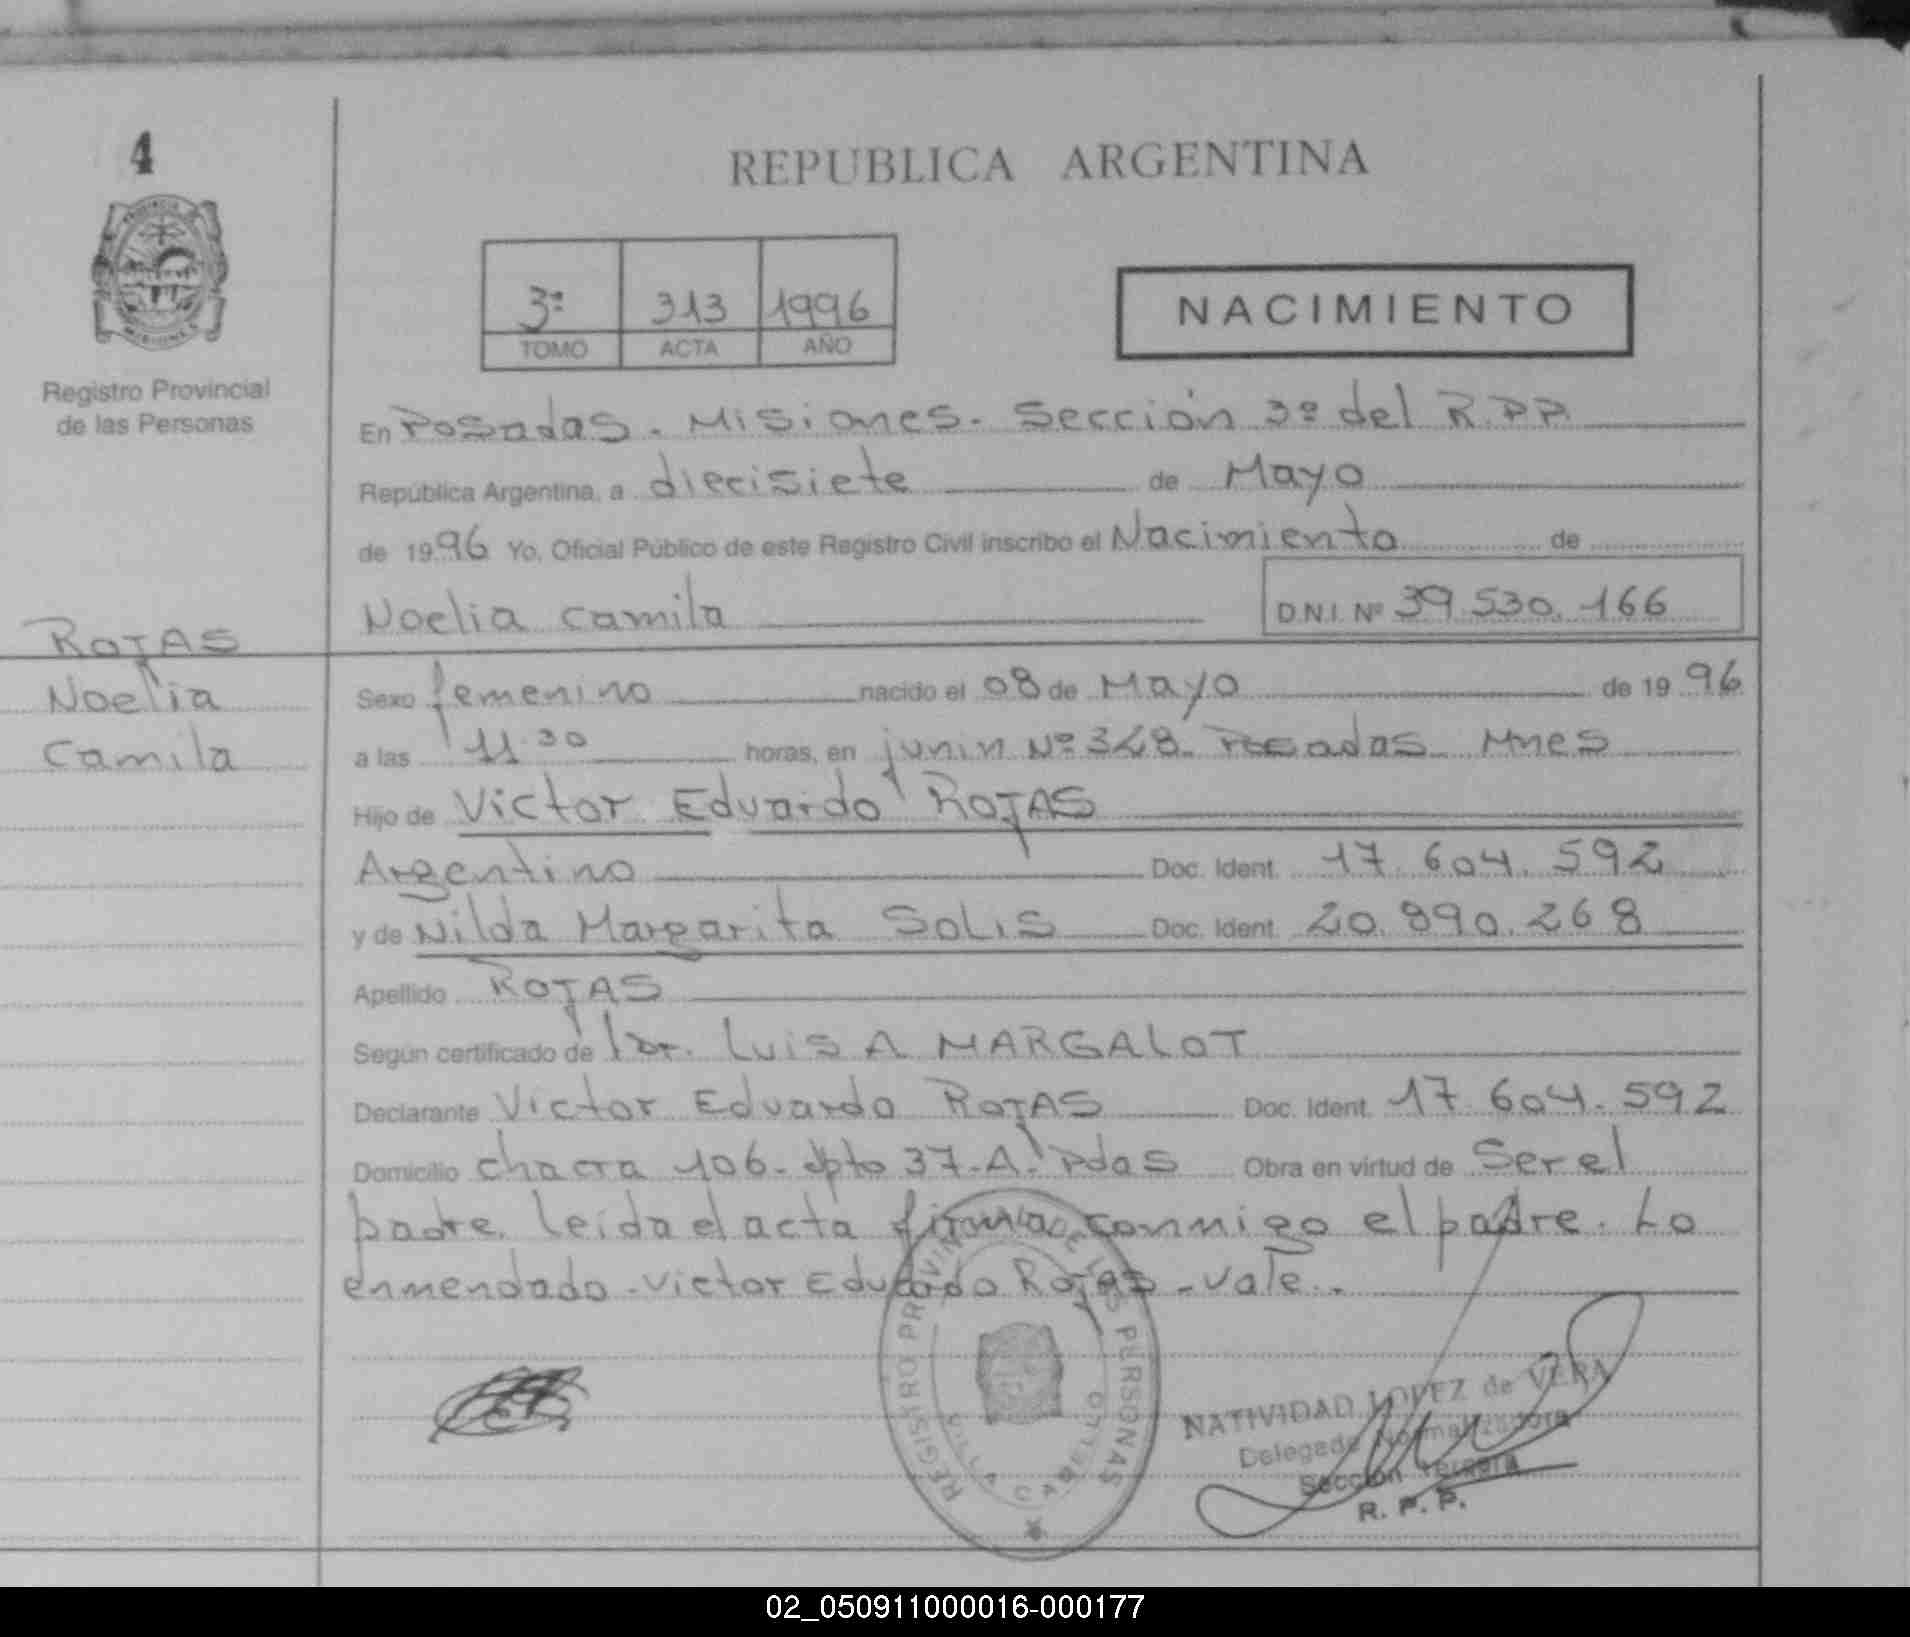 4
REPUBLICA ARGENTINA
3ª 313 1996
TOMO ACTA AÑO
NACIMIENTO
Registro Provincial
de las Personas
En Posadas. Misiones. Sección 3ª del R.P.P.
República Argentina, a diecisiete de Mayo
de 1996 Yo, Oficial Público de este Registro Civil inscribo el Nacimiento de
Noelia Camila D.N.I. Nº 39.530.166
ROJAS
Noelia
Camila
Sexo femenino nacido el 08 de Mayo de 1996
a las 11.30 horas, en junin Nº 348. Posadas Mnes
Hijo de Victor Eduardo ROJAS
Argentino Doc. Ident. 17.604.592
y de Nilda Margarita SOLIS Doc. Ident. 20.890.268
Apellido ROJAS
Según certificado de Dr. Luis A MARGALOT
Declarante Victor Eduardo ROJAS Doc. Ident. 17.604.592
Domicilio chacra 106. dpto 37-A. Pdas Obra en virtud de Ser el
padre. leida el acta firma conmigo el padre. Lo
enmendado - Victor Eduardo Rojas - vale.
REGISTRO PROVINCIAL DE LAS PERSONAS
VILLA CABELLO
NATIVIDAD LOPEZ de VERA
Delegada Normalizadora
Sección Tercera
R. P. P.
02_050911000016-000177